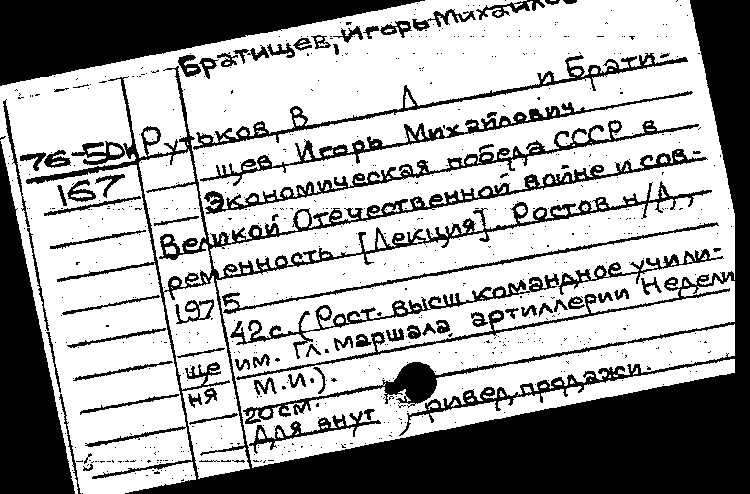 Братищев, Игорь Михайлов
76-50к
167
Рутьков, В Л и Брати-
щев, Игорь Михайлович.
Экономическая победа СССР в
Великой Отечественной войне и сов-
ременность. [Лекция]. Ростов н/Д,,
1975
42 с. (Рост. высш командное учили-
ще им. Гл. маршала артиллерии Недели
ня М.И.).
20 см.
Для внут продажи.